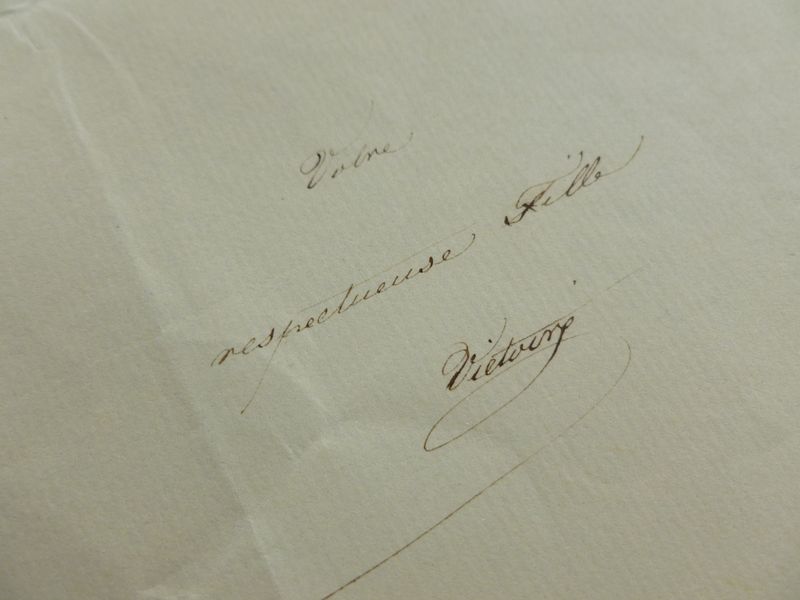 Votre
respectueuse Fille
Victoire